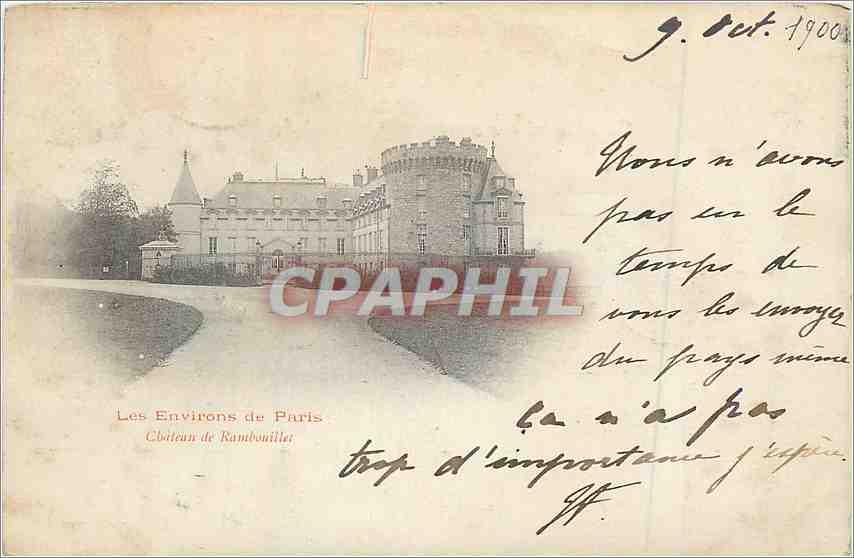 9. Oct. 1900
Nous n'avons
pas eu le
temps de
vous les envoyer
du pays même
Ça n'a pas
trop d'importance j'espère.
CPAPHIL
Les Environs de Paris
Château de Rambouillet